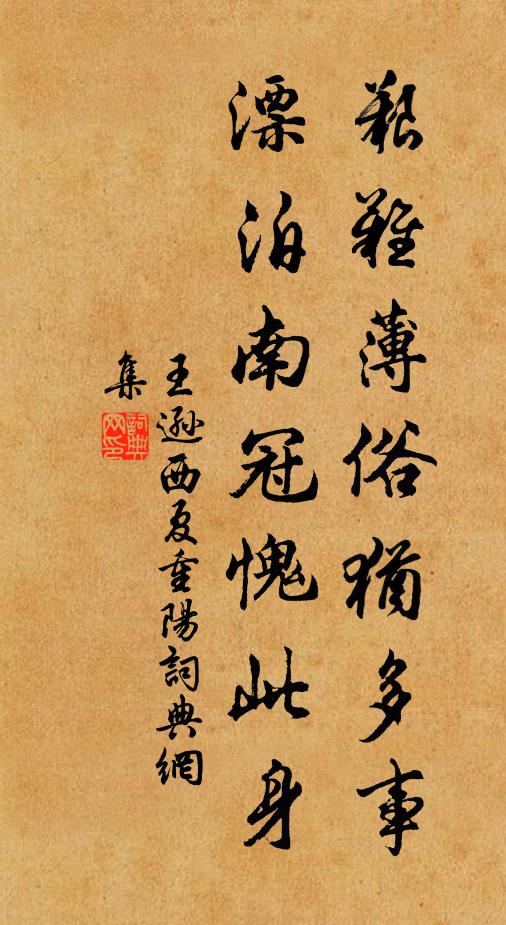 艱難薄俗猶多事
漂泊南冠愧此身
王遜西夏重陽詞典網
集
詞典网印